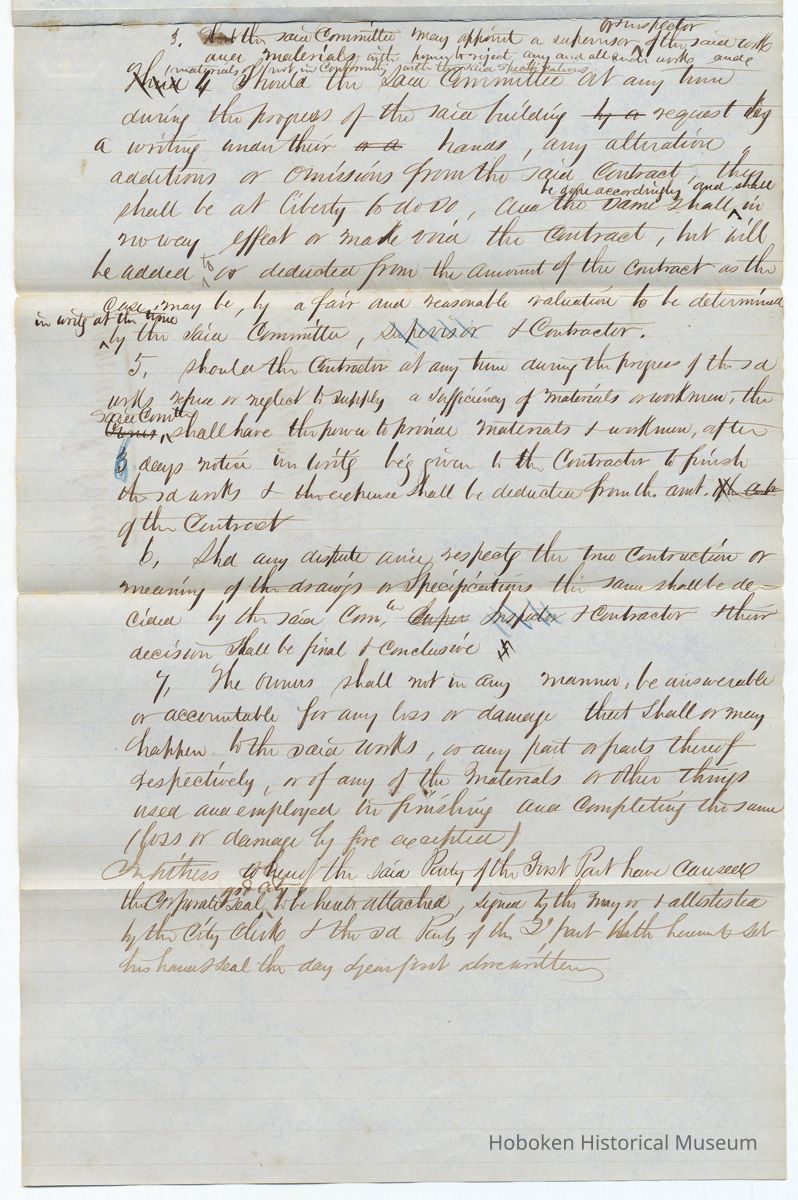 or inspector
3. That the said Committee may appoint a supervisor ^ of the said work
and materials with power to reject any and all such works and
materials if not in Conformity with the said specifications
Third 4 Should the said Committee at any time
during the progress of the said building by a request by
a writing under their or a hands, any alteration,
additions or omissions from the said Contract, they
be done accordingly and shall
shall be at liberty to do so, and the same shall ^ in
no way effect or make void the Contract, but will
be added to or deducted from the amount of the contract as the
case may be, by a fair and reasonable valuation to be determined
in writg at the time
^ by the said Committee, supervisor & Contractor.
5, should the Contractor at any time during the progress of the sd
works refuse or neglect to supply a sufficiency of materials or workmen, the
said Comitte
Owners ^ shall have the power to provide materials & workmen, after
3 days notice in writg beg given to the Contractor to finish
the sd works & the expense shall be deducted from the amt. of the Cont
of the Contract
6, Shd any dispute arise respectg the true Contruction or
meaning of the drawgs or specifications the same shall be de-
cided by the said Comtee Super Inspector & Contractor & their
decision shall be final & conclusive
7, The owners shall not in any manner, be answerable
or accountable for any loss or damage that shall or may
happen to the said works, or any part or parts thereof
respectively, or of any of the materials or other things
used and employed in finishing and completing the same
(loss or damage by fire excepted)
In witness whereof the said Party of the First Part have caused
the Corporate seal to be hereto attached, signed by the mayor & attested
by the City Clerk & the sd Party of the 2d part hath hereunto set
his hand & seal the day & year first above written
Hoboken Historical Museum